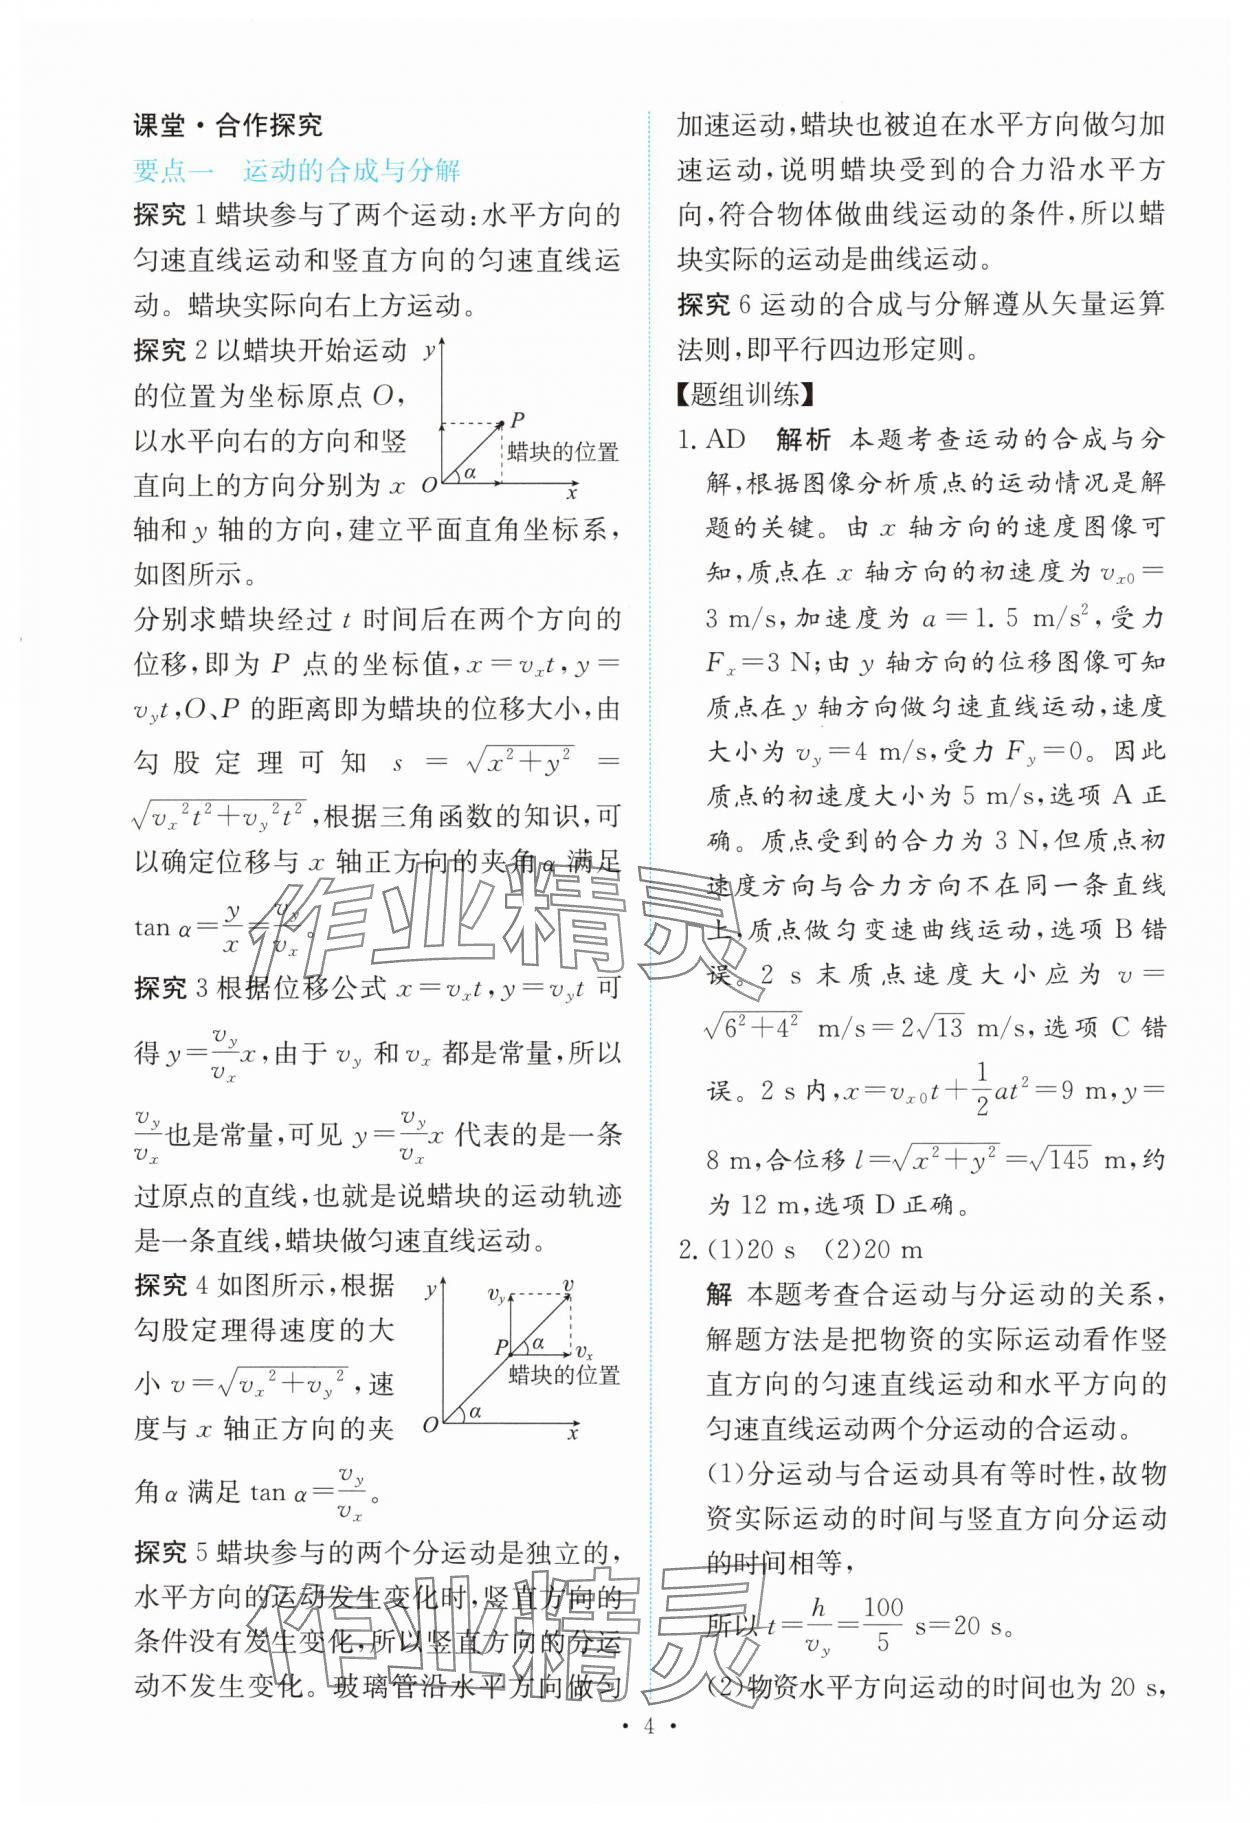 课堂·合作探究
要点一　运动的合成与分解
探究 1 蜡块参与了两个运动:水平方向的
匀速直线运动和竖直方向的匀速直线运
动。蜡块实际向右上方运动。
探究 2 以蜡块开始运动
的位置为坐标原点 O,
以水平向右的方向和竖
直向上的方向分别为 x
y
P
蜡块的位置
α
O
x
轴和 y 轴的方向,建立平面直角坐标系,
如图所示。
分别求蜡块经过 t 时间后在两个方向的
位移,即为 P 点的坐标值,x=vₓt,y=
v_y t,O、P 的距离即为蜡块的位移大小,由
勾股定理可知 s=√(x²+y²)=
√(vₓ²t²+v_y²t²),根据三角函数的知识,可
以确定位移与 x 轴正方向的夹角 α 满足
tan α=y/x=v_y/vₓ。
探究 3 根据位移公式 x=vₓt,y=v_y t 可
得 y=(v_y/vₓ)x,由于 v_y 和 vₓ 都是常量,所以
v_y/vₓ也是常量,可见 y=(v_y/vₓ)x 代表的是一条
过原点的直线,也就是说蜡块的运动轨迹
是一条直线,蜡块做匀速直线运动。
探究 4 如图所示,根据
勾股定理得速度的大
小 v=√(vₓ²+v_y²),速
度与 x 轴正方向的夹
角 α 满足 tan α=v_y/vₓ。
y
v_y
v
P
α
vₓ
蜡块的位置
α
O
x
探究 5 蜡块参与的两个分运动是独立的,
水平方向的运动发生变化时,竖直方向的
条件没有发生变化,所以竖直方向的分运
动不发生变化。玻璃管沿水平方向做匀
加速运动,蜡块也被迫在水平方向做匀加
速运动,说明蜡块受到的合力沿水平方
向,符合物体做曲线运动的条件,所以蜡
块实际的运动是曲线运动。
探究 6 运动的合成与分解遵从矢量运算
法则,即平行四边形定则。
【题组训练】
1. AD　解析　本题考查运动的合成与分
解,根据图像分析质点的运动情况是解
题的关键。由 x 轴方向的速度图像可
知,质点在 x 轴方向的初速度为 vₓ₀=
3 m/s,加速度为 a=1. 5 m/s²,受力
Fₓ=3 N;由 y 轴方向的位移图像可知
质点在 y 轴方向做匀速直线运动,速度
大小为 v_y=4 m/s,受力 F_y=0。因此
质点的初速度大小为 5 m/s,选项 A 正
确。质点受到的合力为 3 N,但质点初
速度方向与合力方向不在同一条直线
上,质点做匀变速曲线运动,选项 B 错
误。2 s 末质点速度大小应为 v=
√(6²+4²) m/s=2√13 m/s,选项 C 错
误。2 s 内,x=vₓ₀t+(1/2)at²=9 m,y=
8 m,合位移 l=√(x²+y²)=√145 m,约
为 12 m,选项 D 正确。
2. (1)20 s　(2)20 m
解　本题考查合运动与分运动的关系,
解题方法是把物资的实际运动看作竖
直方向的匀速直线运动和水平方向的
匀速直线运动两个分运动的合运动。
(1)分运动与合运动具有等时性,故物
资实际运动的时间与竖直方向分运动
的时间相等,
所以 t=h/v_y=100/5 s=20 s。
(2)物资水平方向运动的时间也为 20 s,
作业精灵
作业精灵
· 4 ·